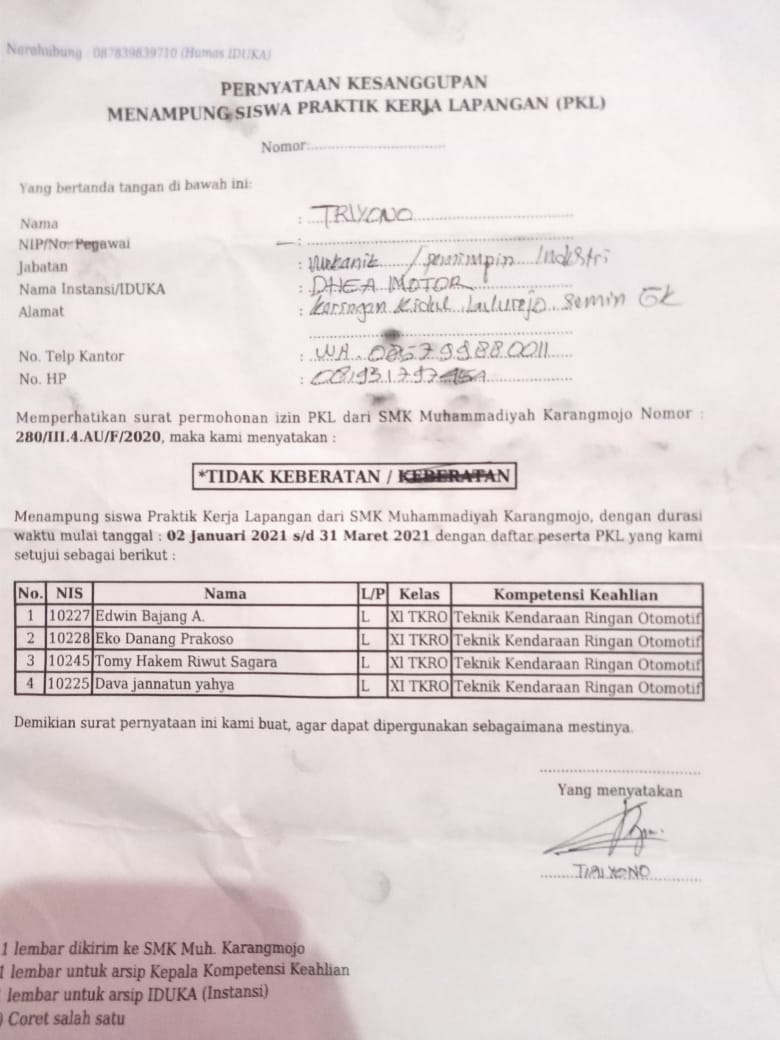 Narahubung : 087839839710 (Humas IDUKA)
PERNYATAAN KESANGGUPAN
MENAMPUNG SISWA PRAKTIK KERJA LAPANGAN (PKL)
Nomor:
Yang bertanda tangan di bawah ini:
Nama : TRIYONO
NIP/No. Pegawai :
Jabatan : Mekanik / pemimpin Industri
Nama Instansi/IDUKA : DHEA MOTOR
Alamat : Karangan Kidul, Semin GK
No. Telp Kantor : WA.
No. HP :
Memperhatikan surat permohonan izin PKL dari SMK Muhammadiyah Karangmojo Nomor :
280/III.4.AU/F/2020, maka kami menyatakan :
*TIDAK KEBERATAN / KEBERATAN
Menampung siswa Praktik Kerja Lapangan dari SMK Muhammadiyah Karangmojo, dengan durasi
waktu mulai tanggal : 02 Januari 2021 s/d 31 Maret 2021 dengan daftar peserta PKL yang kami
setujui sebagai berikut :
No. NIS Nama L/P Kelas Kompetensi Keahlian
1 10227 Edwin Bajang A. L XI TKRO Teknik Kendaraan Ringan Otomotif
2 10228 Eko Danang Prakoso L XI TKRO Teknik Kendaraan Ringan Otomotif
3 10245 Tomy Hakem Riwut Sagara L XI TKRO Teknik Kendaraan Ringan Otomotif
4 10225 Dava jannatun yahya L XI TKRO Teknik Kendaraan Ringan Otomotif
Demikian surat pernyataan ini kami buat, agar dapat dipergunakan sebagaimana mestinya.
Yang menyatakan
TRIYONO
1 lembar dikirim ke SMK Muh. Karangmojo
1 lembar untuk arsip Kepala Kompetensi Keahlian
lembar untuk arsip IDUKA (Instansi)
) Coret salah satu